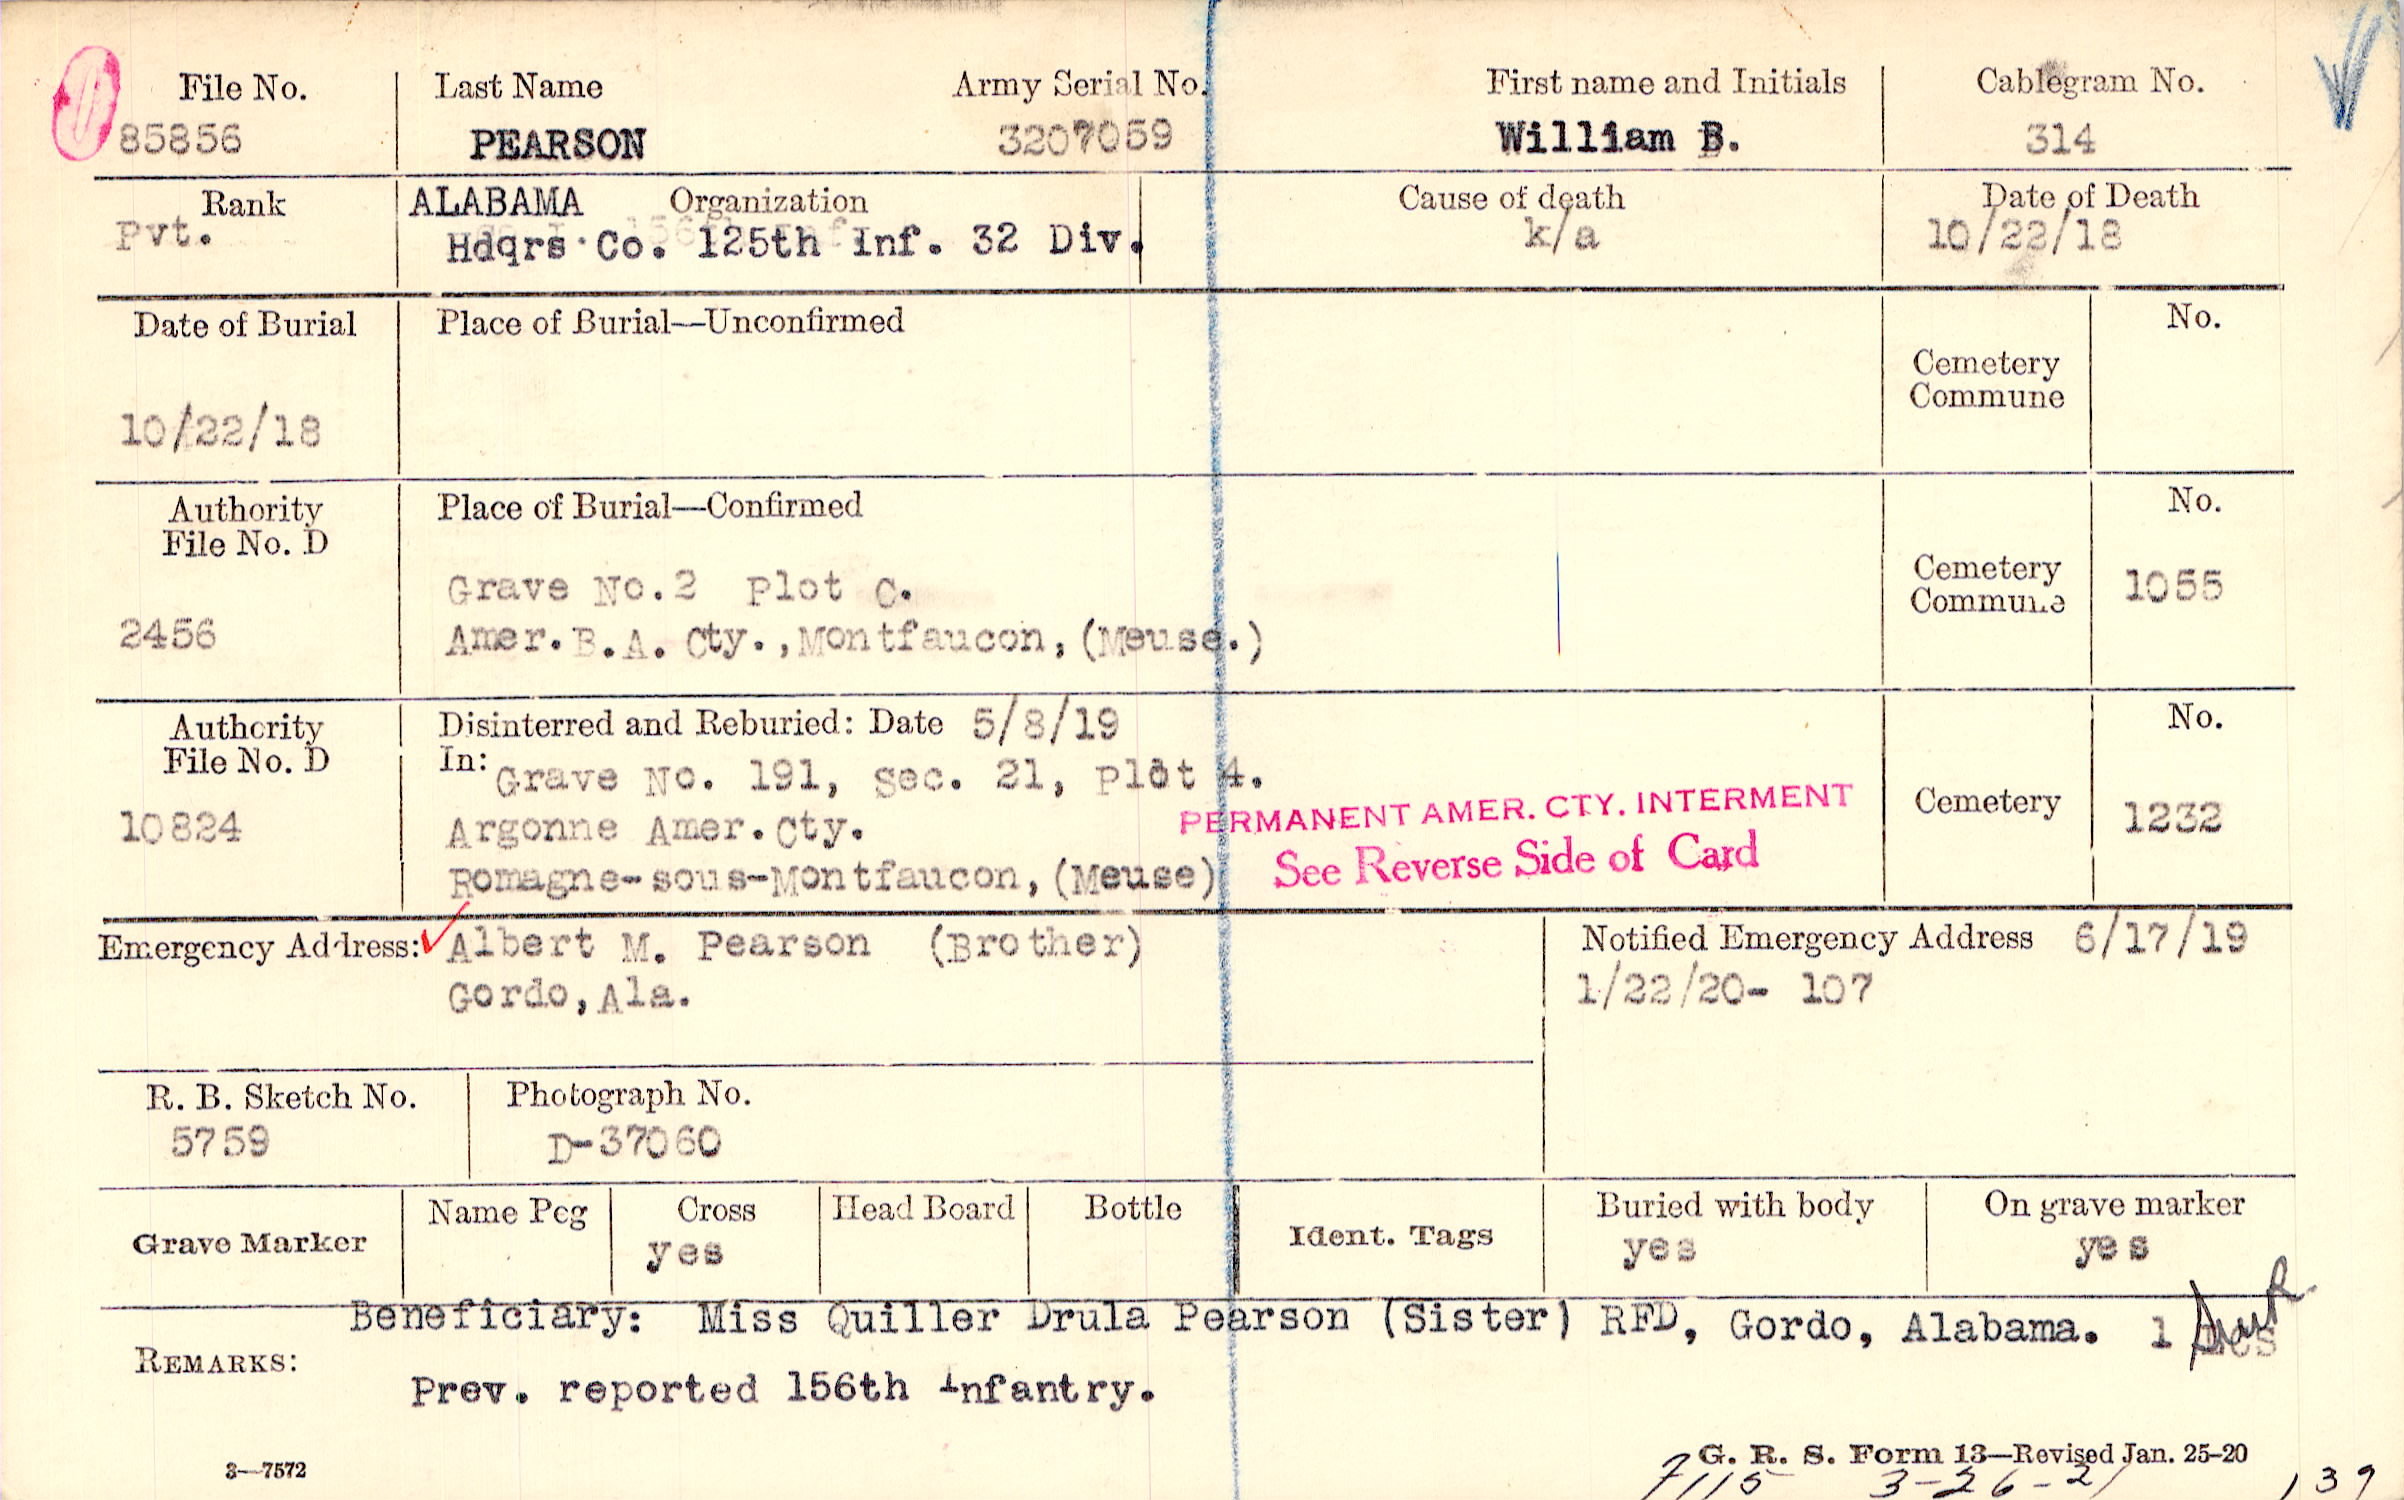 File No. Last Name Army Serial No. First name and Initials Cablegram No.
85856 PEARSON 3207059 William B. 314
Rank ALABAMA Organization Cause of death Date of Death
Pvt. Hdqrs Co. 125th Inf. 32 Div. k/a 10/22/18
Date of Burial Place of Burial—Unconfirmed No.
Cemetery
Commune
10/22/18
Authority Place of Burial—Confirmed No.
File No. D
Grave No.2 Plot C. Cemetery
Commune 1055
2456 Amer. B.A. Cty., Montfaucon, (Meuse.)
Authority Disinterred and Reburied: Date 5/8/19 No.
File No. D In: Grave No. 191, Sec. 21, Plot 4.
PERMANENT AMER. CTY. INTERMENT Cemetery 1232
10824 Argonne Amer. Cty.
See Reverse Side of Card
Romagne-sous-Montfaucon, (Meuse)
Emergency Address: Albert M. Pearson (Brother) Notified Emergency Address 6/17/19
Gordo, Ala. 1/22/20- 107
R. B. Sketch No. Photograph No.
5759 D-37060
Grave Marker Name Peg Cross Head Board Bottle Ident. Tags Buried with body On grave marker
yes yes yes
Beneficiary: Miss Quiller Drula Pearson (Sister) RFD, Gordo, Alabama. 1
REMARKS:
Prev. reported 156th Infantry.
3—7572 G. R. S. Form 13—Revised Jan. 25-20
7115 3-26-21 139